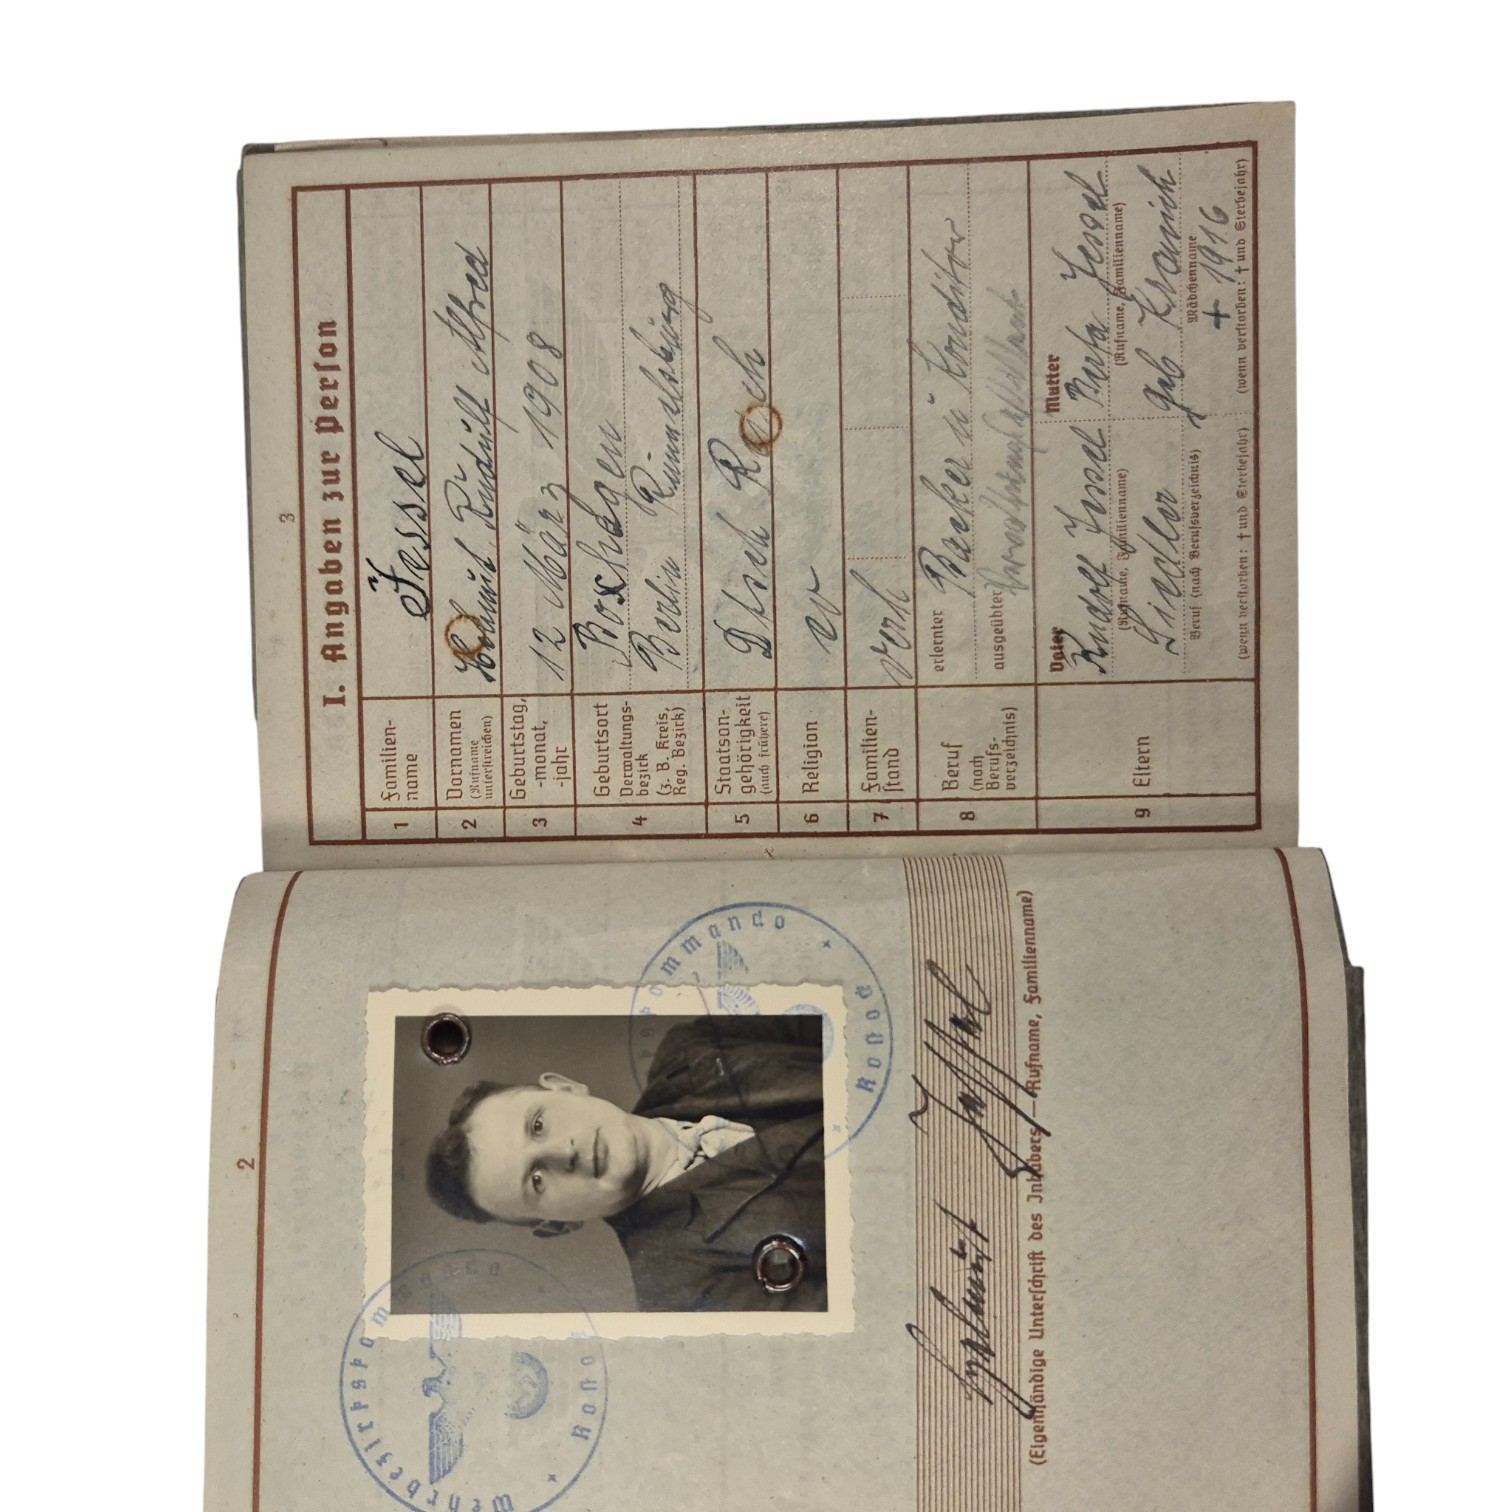 2
Wehrbezirkskommando
Rostock
kommando
Rostock
Helmut Jessel
(Eigenhändige Unterschrift des Inhabers—Rufname, Familienname)
3
I. Angaben zur Person
1 Familien-
name
Jessel
2 Vornamen
(Rufname
unterstreichen)
Helmut Rudolf Alfred
3 Geburtstag,
-monat,
-jahr
12 März 1908
4 Geburtsort
Verwaltungs-
bezirk
(z. B. Kreis,
Reg. Bezirk)
Boxhagen
Berlin Rummelsburg
5 Staatsan-
gehörigkeit
(auch frühere)
Dtsch Reich
6 Religion
ev
7 Familien-
stand
verh
8 Beruf
(nach
Berufs-
verzeichnis)
erlernter Bäcker u Konditor
ausgeübter
9 Eltern
Vater
Rudolf Jessel
(Rufname, Familienname)
Siedler
Beruf (nach Berufsverzeichnis)
(wenn verstorben: † und Sterbejahr)
Mutter
Berta Jessel
(Rufname, Familienname)
geb
Mädchenname
+ 1916
(wenn verstorben: † und Sterbejahr)